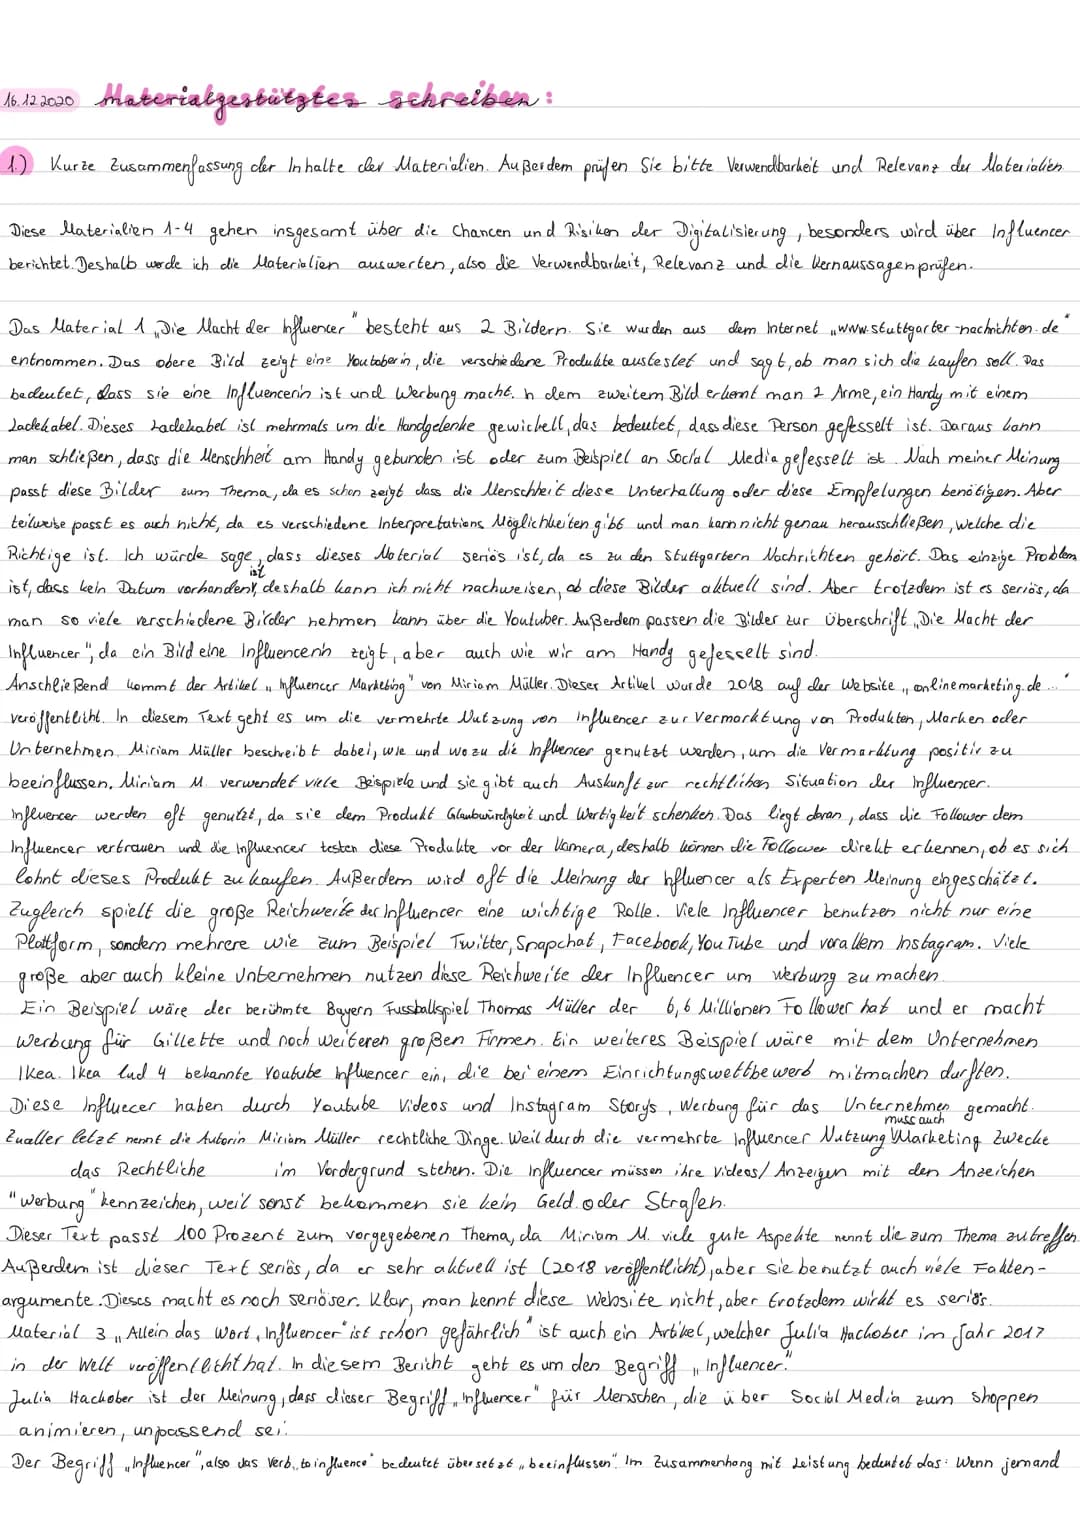 16.12.2020 Materialgestütztes schreiben:
1.) Kurze Zusammenfassung der Inhalte der Materialien. Außerdem prüfen Sie bitte Verwendbarkeit und Relevanz der Materialien
Diese Materialien 1-4 gehen insgesamt über die Chancen und Risiken der Digitalisierung, besonders wird über Influencer
berichtet. Deshalb werde ich die Materialien auswerten, also die Verwendbarkeit, Relevanz und die Kernaussagen prüfen.
Das Material 1 „Die Macht der Influencer" besteht aus 2 Bildern. Sie wurden aus dem Internet „www.stuttgarter-nachrichten.de"
entnommen. Das obere Bild zeigt eine Youtoberin, die verschiedene Produkte austestet und sagt, ob man sich die kaufen soll. Das
bedeutet, dass sie eine Influencerin ist und Werbung macht. In dem zweitem Bild erkennt man 2 Arme, ein Handy mit einem
Ladekabel. Dieses Ladekabel ist mehrmals um die Handgelenke gewickelt, das bedeutet, dass diese Person gefesselt ist. Daraus kann
man schließen, dass die Menschheit am Handy gebunden ist oder zum Beispiel an Social Media gefesselt ist. Nach meiner Meinung
passt diese Bilder zum Thema, da es schon zeigt dass die Menschheit diese Unterhaltung oder diese Empfelungen benötigen. Aber
teilweise passt es auch nicht, da es verschiedene Interpretations Möglichkeiten gibt und man kann nicht genau herausschließen, welche die
Richtige ist. Ich würde sage, dass dieses Material seriös ist, da es zu den Stuttgartern Nachrichten gehört. Das einzige Problem
ist, dass kein Datum vorhanden ist, deshalb kann ich nicht nachweisen, ob diese Bilder aktuell sind. Aber trotzdem ist es seriös, da
man so viele verschiedene Bilder nehmen kann über die Youtuber. Außerdem passen die Bilder zur Überschrift „Die Macht der
Influencer", da ein Bild eine Influencerin zeigt, aber auch wie wir am Handy gefesselt sind.
Anschließend kommt der Artikel „Influencer Marketing" von Miriam Müller. Dieser Artikel wurde 2018 auf der Website „onlinemarketing.de..."
veröffentlicht. In diesem Text geht es um die vermehrte Nutzung von Influencer zur Vermarktung von Produkten, Marken oder
Unternehmen. Miriam Müller beschreibt dabei, wie und wozu die Influencer genutzt werden, um die Vermarktung positiv zu
beeinflussen. Miriam M. verwendet viele Beispiele und sie gibt auch Auskunft zur rechtlichen Situation der Influencer.
Influencer werden oft genutzt, da sie dem Produkt Glaubwürdigkeit und Wertigkeit schenken. Das liegt daran, dass die Follower dem
Influencer vertrauen und die Influencer testen diese Produkte vor der Kamera, deshalb können die Follower direkt erkennen, ob es sich
lohnt dieses Produkt zu kaufen. Außerdem wird oft die Meinung der Influencer als Experten Meinung eingeschätzt.
Zugleich spielt die große Reichweite der Influencer eine wichtige Rolle. Viele Influencer benutzen nicht nur eine
Plattform, sondern mehrere wie zum Beispiel Twitter, Snapchat, Facebook, YouTube und vorallem Instagram. Viele
große aber auch kleine Unternehmen nutzen diese Reichweite der Influencer um Werbung zu machen.
Ein Beispiel wäre der berühmte Bayern Fussballspiel Thomas Müller der 6,6 Millionen Follower hat und er macht
Werbung für Gillette und noch weiteren großen Firmen. Ein weiteres Beispiel wäre mit dem Unternehmen
Ikea. Ikea lud 4 bekannte Youtube Influencer ein, die bei einem Einrichtungswettbewerb mitmachen durften.
Diese Influecer haben durch Youtube Videos und Instagram Story's, Werbung für das Unternehmen gemacht.
Zualler letzt nennt die Autorin Miriam Müller rechtliche Dinge. Weil durch die vermehrte Influencer Nutzung muss auch Marketing Zwecke
das Rechtliche im Vordergrund stehen. Die Influencer müssen ihre Videos/Anzeigen mit den Anzeichen
"Werbung" kennzeichen, weil sonst bekommen sie kein Geld oder Strafen.
Dieser Text passt 100 Prozent zum vorgegebenen Thema, da Miriam M. viele gute Aspekte nennt die zum Thema zutreffen.
Außerdem ist dieser Text seriös, da er sehr aktuell ist (2018 veröffentlicht), aber sie benutzt auch viele Fakten-
argumente. Dieses macht es noch seriöser. Klar, man kennt diese Website nicht, aber trotzdem wirkt es seriös.
Material 3 „Allein das Wort „Influencer" ist schon gefährlich" ist auch ein Artikel, welcher Julia Hackober im Jahr 2017
in der Welt veröffentlicht hat. In diesem Bericht geht es um den Begriff „Influencer."
Julia Hackober ist der Meinung, dass dieser Begriff „Influencer" für Menschen, die über Social Media zum shoppen
animieren, unpassend sei.
Der Begriff „Influencer", also das Verb „to influence" bedeutet übersetzt „beeinflussen". Im Zusammenhang mit Leistung bedeutet das: Wenn jemand